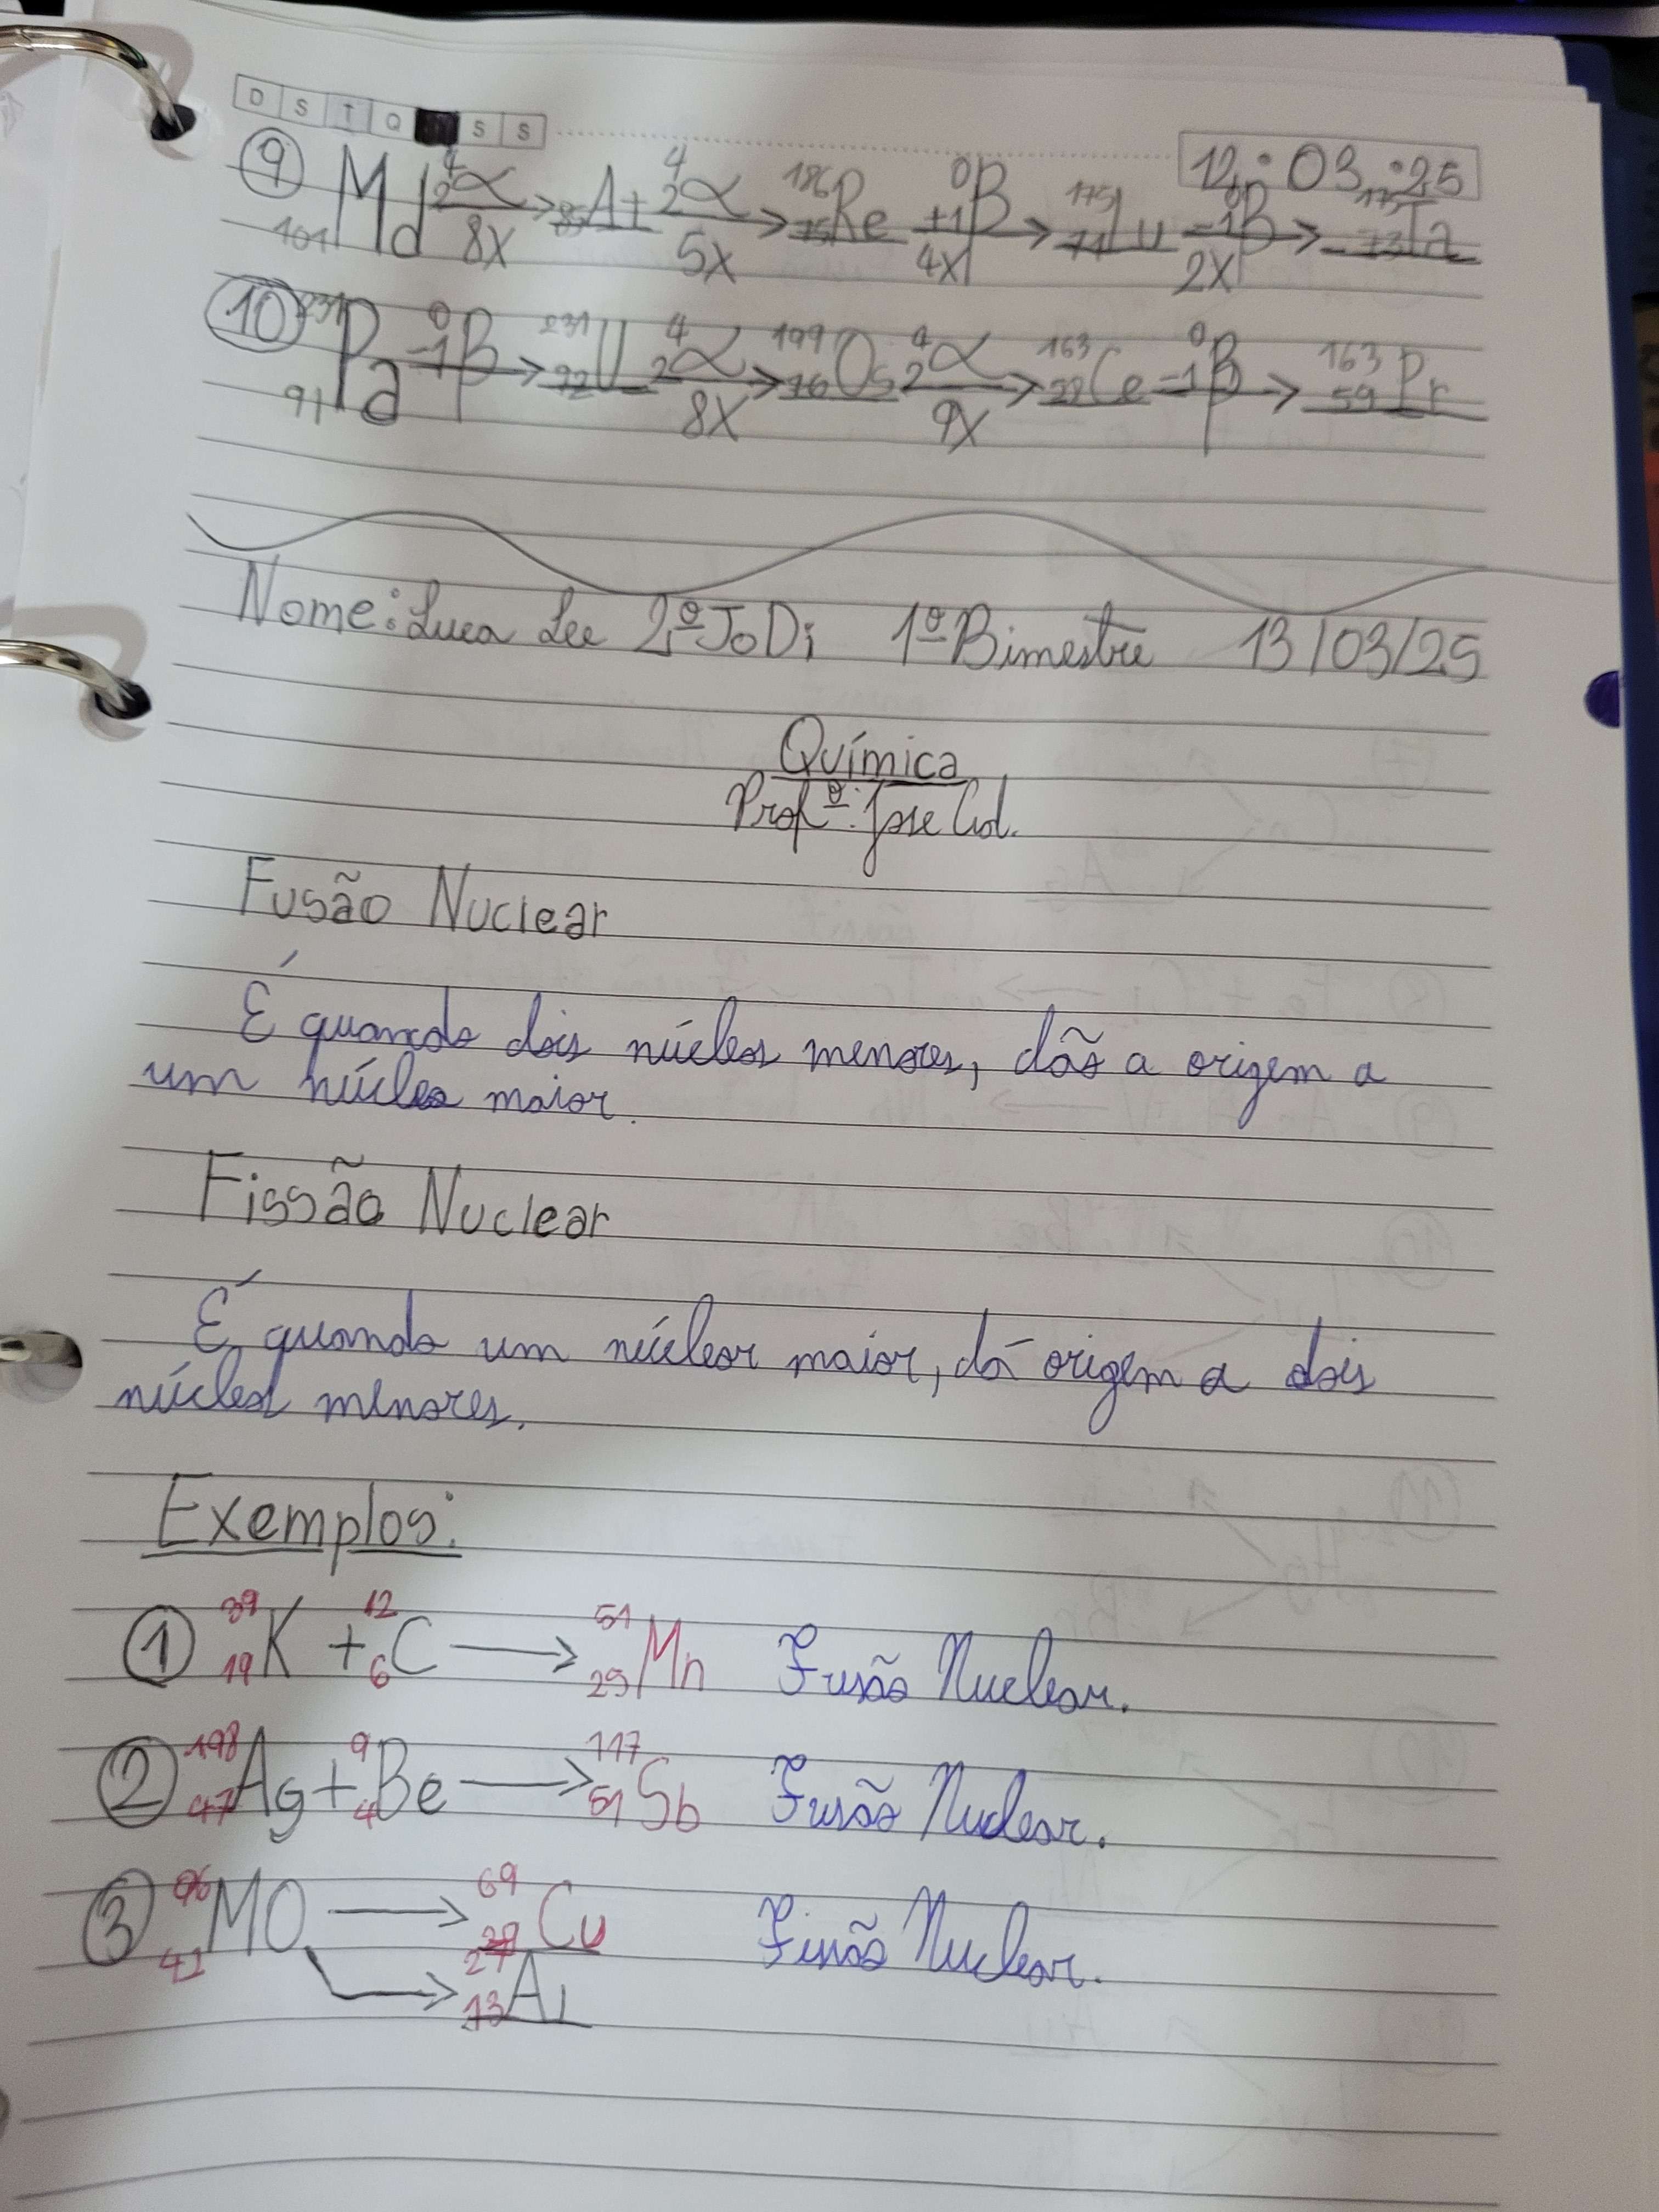 D S T Q S S
12 03 25
9 101Md 4 2α 8x → 85At 4 2α 5x → 186 75Re 0 +1β 4x → 175 71Lu 0 -1β 2x → 175 73Ta
10 231 91Pa 0 -1β → 231 92U 4 2α 8x → 199 76Os 4 2α 9x → 163 Ce 0 -1β → 163 59Pr
Nome: Luca Lee 2º JoDi 1º Bimestre 13/03/25
Química
Profº: Jose
Fusão Nuclear
É quando dois núcleos menores, dão a origem a
um núcleo maior.
Fissão Nuclear
É quando um núcleor maior, dá origem a dois
núcleos menores.
Exemplos:
1 39 19K + 12 6C → 51 25Mn Fusão Nuclear.
2 198 47Ag + 9 4Be → 117 51Sb Fusão Nuclear.
3 96 42MO → 69 29Cu Fissão Nuclear.
→ 27 13Al